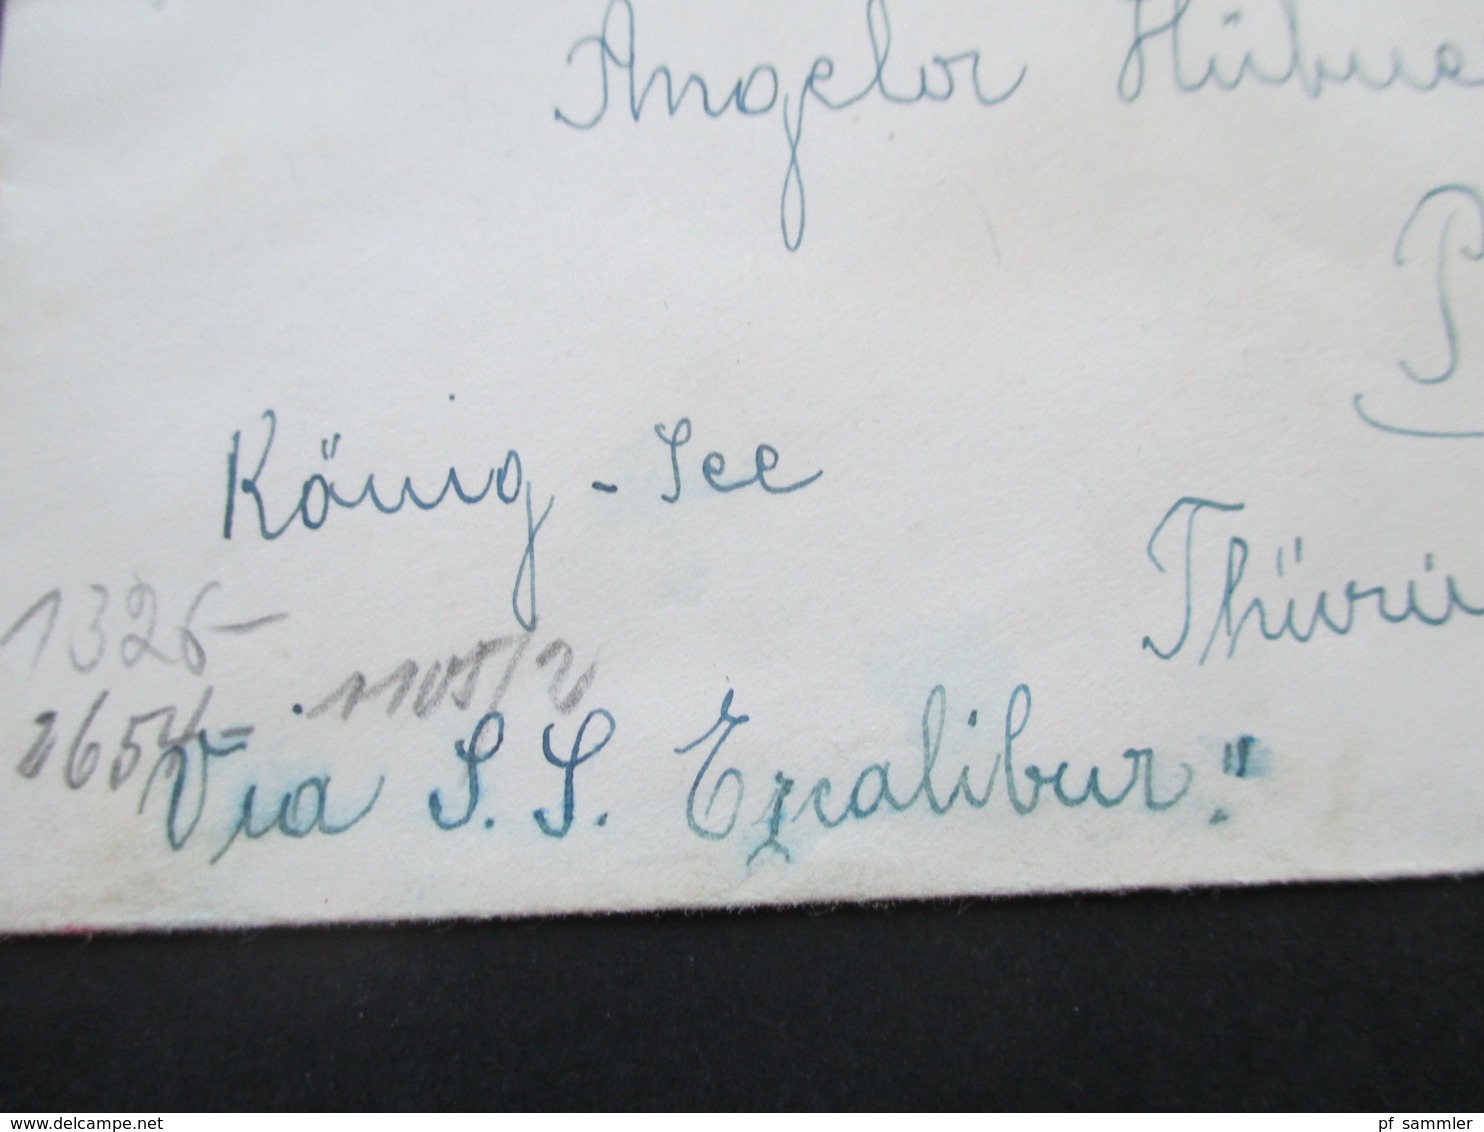 Angelor Hübne
P
König-See
Thürin
1326-
2654- 1105/2
Via S.S. Excalibur."
pf_sammler